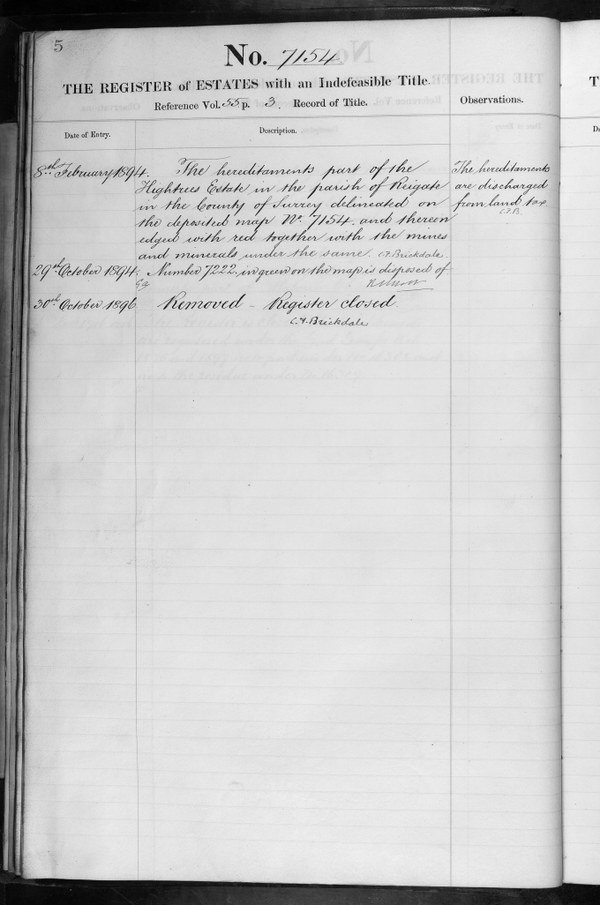 5
No. 7154
THE REGISTER of ESTATES with an Indefeasible Title.
Reference Vol. 55 p. 3. Record of Title.
Observations.
Date of Entry.
Description.
8th February 1894.
The hereditaments part of the
Hightrees Estate in the parish of Reigate
in the County of Surrey delineated on
the deposited map No. 7154 and thereon
edged with red together with the mines
and minerals under the same. C.F. Brickdale.
The hereditaments
are discharged
from land tax
C.F.B.
29th October 1894.
Number 7222, in green on the map is disposed of
30th October 1896
Removed - Register closed
C.F. Brickdale